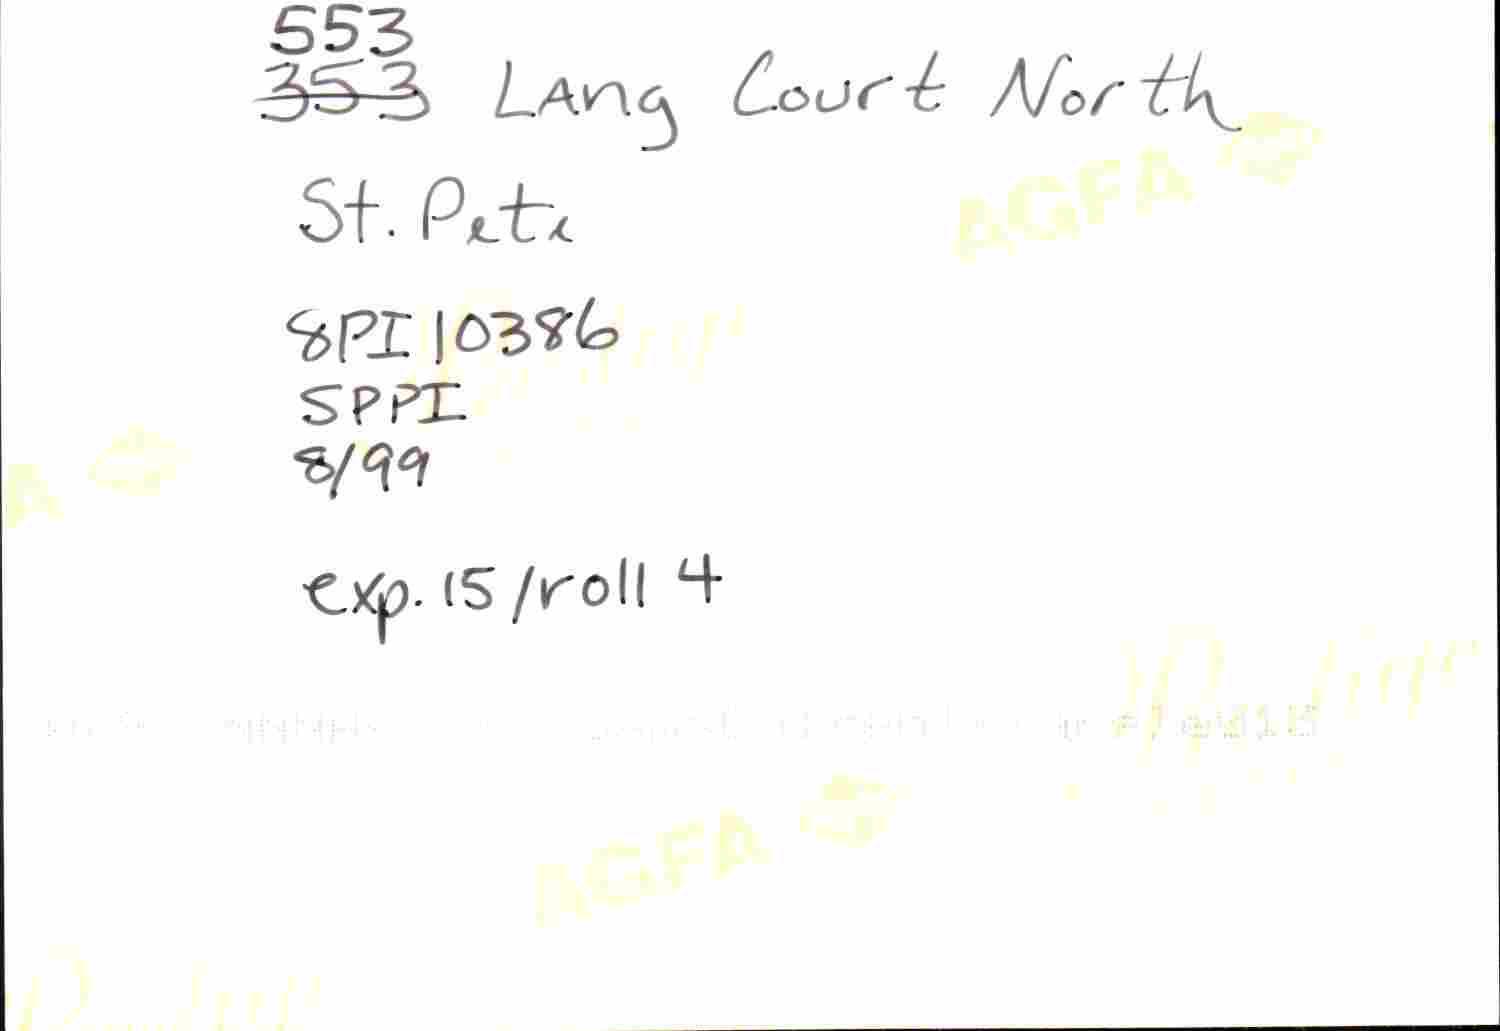 553
353 Lang Court North
St. Pete
8PI10386
SPPI
8/99
exp. 15/roll 4
AGFA
AGFA